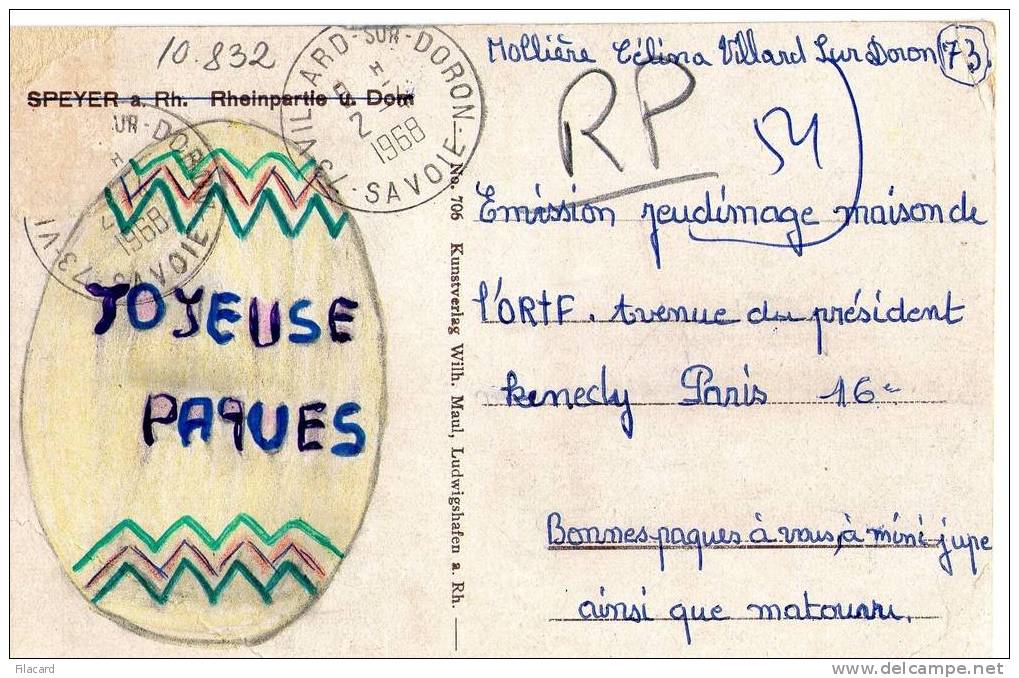 10.832
SPEYER a. Rh. Rheinpartie u. Dom
VILLARD-SUR-DORON
1968
73-
SAVOIE
UR-DORON
1968
73-VI
SAVOIE
JOYEUSE
PAQUES
No. 706 Kunstverlag Wilh. Maul, Ludwigshafen a. Rh.
Mollière Célina Villard Sur Doron 73
RP
54
Emission jeudimage maison de
l'ORTF. Avenue du président
kenedy Paris 16e
Bonnes paques à vous, à mini jupe
ainsi que matouvu.
Filacard
delcampe.net